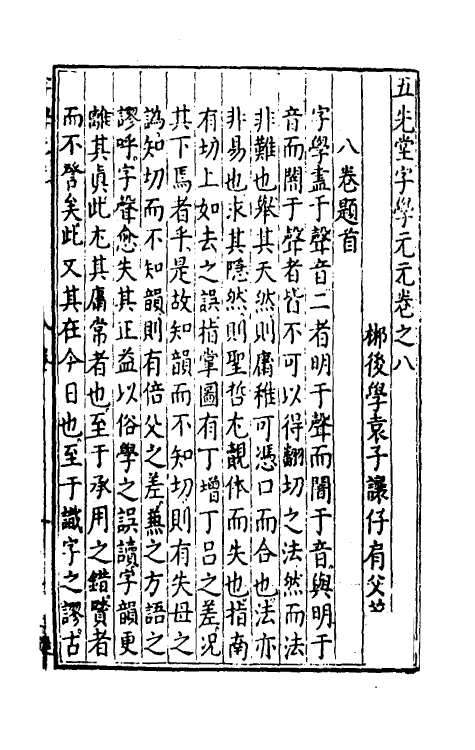 五先堂字學元元卷之八
郴後學袁子讓仔肩父
八卷題首
字學盡于聲音二者明于聲而闇于音與明于
音而闇于聲者皆不可以得翻切之法然而法
非難也舉其天然則庸稚可憑口而合也法亦
非易也求其隱然則聖哲尤覿体而失也指南
有切上如去之誤指掌圖有丁增丁呂之差况
其下焉者乎是故知韻而不知切則有失母之
譌知切而不知韻則有倍父之差兼之方語之
謬呼字聲愈失其正益以俗學之誤讀字韻更
離其眞此尤其庸常者也至于承用之錯賢者
而不詧矣此又其在今日也至于識字之謬古